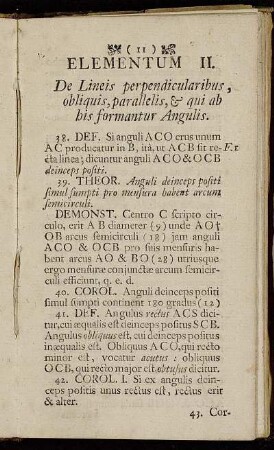 ( 11 )
ELEMENTUM II.
De Lineis perpendicularibus,
obliquis, parallelis, & qui ab
his formantur Angulis.
38. DEF. Si anguli ACO crus unum
AC producatur in B, ità, ut ACB sit re-
cta linea; dicuntur anguli ACO & OCB
deinceps positi.
39. THEOR. Anguli deinceps positi
simul sumpti pro mensura habent arcum
semicirculi.
DEMONST. Centro C scripto cir-
culo, erit AB diameter (9) unde AO †
OB arcus semicirculi (18) jam anguli
ACO & OCB pro suis mensuris ha-
bent arcus AO & BO (28) utriusque
ergo mensuræ conjunctæ arcum semicir-
culi efficiunt, q. e. d.
40. COROL. Anguli deinceps positi
simul sumpti continent 180 gradus (12)
41. DEF. Angulus rectus ACS dici-
tur, cui æqualis est deinceps positus SCB.
Angulus obliquus est, cui deinceps positus
inæqualis est. Obliquus ACO, qui recto
minor est, vocatur acutus: obliquus
OCB, qui recto major est obtusus dicitur.
42. COROL. I. Si ex angulis dein-
ceps positis unus rectus est, rectus erit
& alter.
43. Cor-